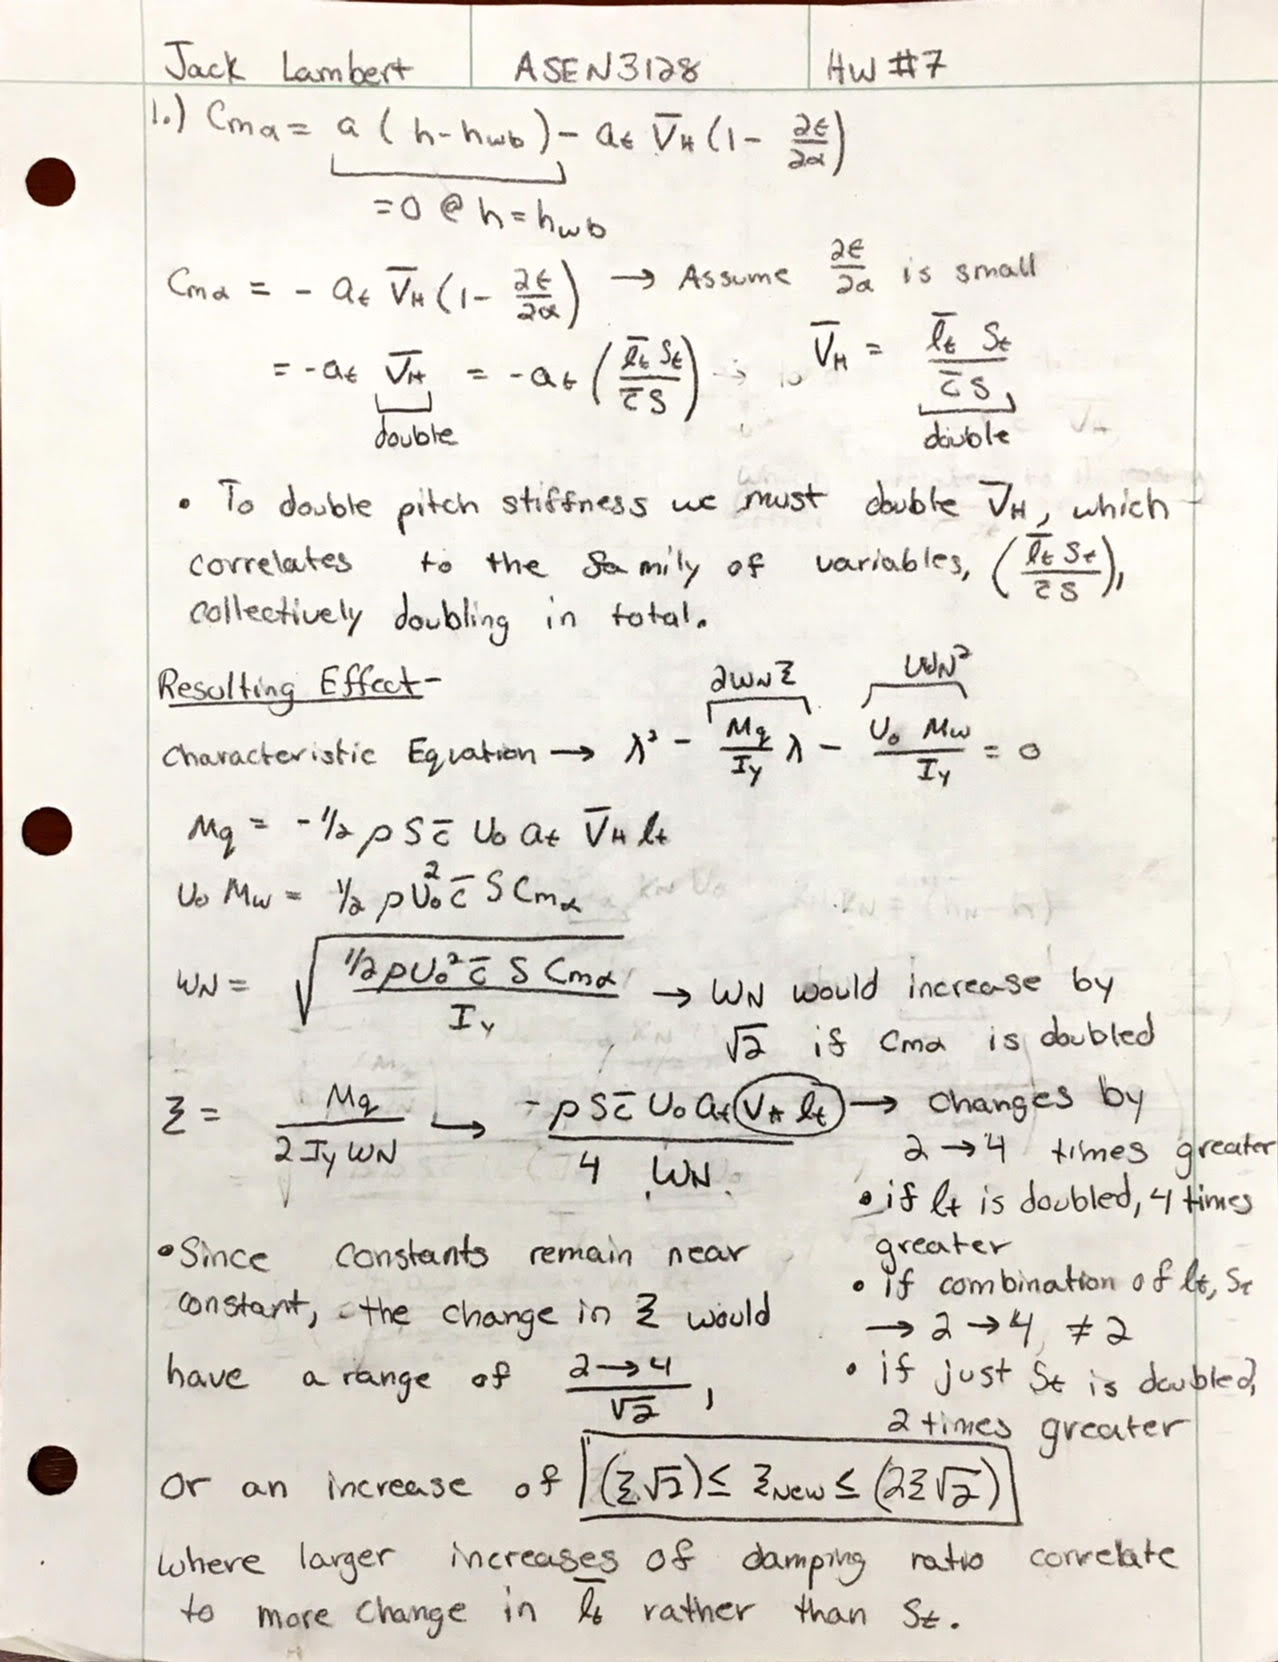 Jack Lambert ASEN3128 HW #7
1.) Cmα = a ( h - hwb ) - at V̄H (1 - ∂ε/∂α)
= 0 @ h = hwb
Cmα = - at V̄H (1 - ∂ε/∂α) → Assume ∂ε/∂α is small
= - at V̄H = - at (l̄t St / c̄ S) → V̄H = l̄t St / c̄ S
double double
• To double pitch stiffness we must double V̄H, which
correlates to the family of variables, (l̄t St / c̄ S),
collectively doubling in total.
Resulting Effect -
2WNξ WN²
Characteristic Equation → λ² - Mq/Iy λ - U₀ Mw/Iy = 0
Mq = - 1/2 ρ S c̄ U₀ at V̄H lt
U₀ Mw = 1/2 ρ U₀² c̄ S Cmα
WN = √(1/2 ρ U₀² c̄ S Cmα / Iy) → WN would increase by
√2 if Cmα is doubled
ξ = Mq / 2 Iy WN → - ρ S c̄ U₀ at VH lt / 4 WN → changes by
2 → 4 times greater
• if lt is doubled, 4 times
greater
• if combination of lt, St
→ 2 → 4, ≠ 2
• if just St is doubled,
2 times greater
• Since constants remain near
constant, the change in ξ would
have a range of 2 → 4 / √2 ,
or an increase of (ξ√2) ≤ ξNew ≤ (2ξ√2)
where larger increases of damping ratio correlate
to more change in l̄t rather than St.